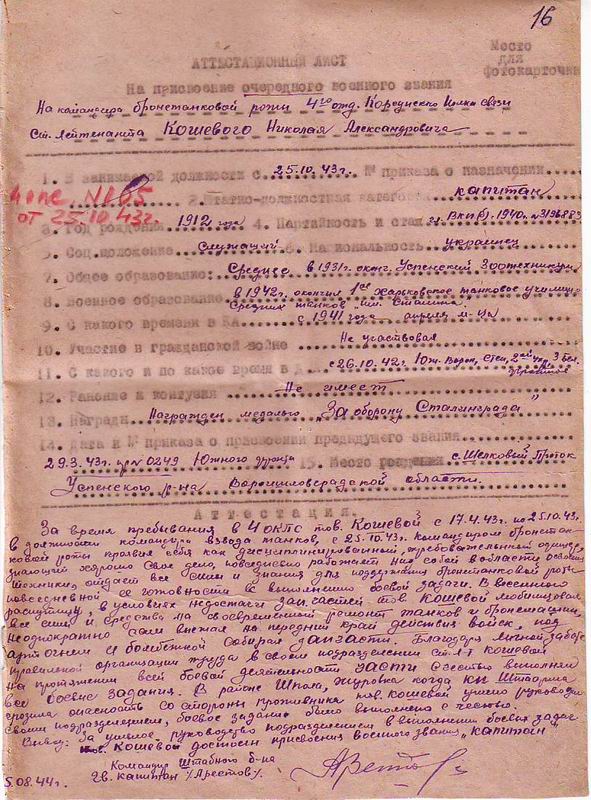 16
АТТЕСТАЦИОННЫЙ ЛИСТ
Место
для
фотокарточки
На присвоение очередного военного звания
На командира бронетанковой роты 4го отд. полка связи
Ст. лейтенанта Кошевого Николая Александровича
1. В занимаемой должности с 25.10.43г. № приказа о назначении
4 опс №165
от 25.10.43г.
2. Штатно-должностная категория капитан
3. Год рождения 1912 года 4. Партийность и стаж ВКП(б) 1940г.
5. Соц. положение Служащий 6. Национальность украинец
7. Общее образование Среднее в 1931г. оконч. Успенский Зоотехникум
8. Военное образование в 1942г. окончил 1ое Харьковское танковое училище
Средних танков им. Сталина
9. С какого времени в КА с 1941 года апреля м-ца
10. Участие в гражданской войне Не участвовал
11. С какого и по какое время в с 26.10.42г. Юж. Ворон, Степ, 2ой Укр, 3 Бел.
фронтов
12. Ранение и контузия Не имеет
13. Награды Награжден медалью „За оборону Сталинграда"
14. Дата и № приказа о присвоении предидущего звания
29.3.43г. пр №0249 Южного фронта 15. Место рождения с. Шелковый Проток
Успенского р-на Ворошиловградской области.
Аттестация.
За время пребывания в 4 ОКПС тов. Кошевой с 17.4.43г. по 25.10.43г.
в должности командира взвода танков, с 25.10.43г. командиром бронетан-
ковой роты проявил себя как дисциплинированный, требовательный офицер,
знающий хорошо свое дело, повседневно работает над собой в области освоения
техники, отдает все силы и знания для поддержания бронетанковой роты
повседневной готовности к выполнению боевой задачи. В весеннюю
распутицу, в условиях недостачи запчастей тов Кошевой мобилизовал
все силы и средства на своевременный ремонт танков и бронемашин,
неоднократно сам выезжал на передний край действия войск, под
артогнем и бомбежкой собирал запчасти. Благодаря личной заботе
правильной организации труда в своем подразделении ст л-т Кошевой
на протяжении всей боевой деятельности части с честью выполнял
все боевые задания. В районе Шпола, Журовка когда КП Штарма
грозила опасность со стороны противника тов. Кошевой умело руководил
своим подразделением, боевое задание было выполнено с честью.
Вывод: За умелое руководство подразделением в выполнении боевых задач
тов. Кошевой достоин присвоения военного звания „капитан"
Командир Штабного б-на
гв. капитан /Арестов/
5.08.44г.